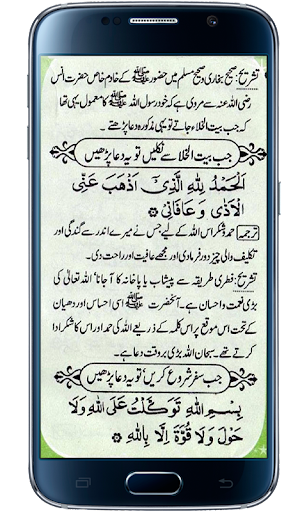 تشریح: صحیح بخاری و صحیح مسلم میں حضور ﷺ کے خادم خاص حضرت انس
رضی اللہ عنہ سے مروی ہے کہ خود رسول اللہ ﷺ کا معمول یہی تھا
کہ جب بیت الخلاء جاتے تو یہی مذکورہ دعا پڑھتے۔
جب بیت الخلا سے نکلیں تو یہ دعا پڑھیں
اَلْحَمْدُ لِلّٰهِ الَّذِيْ اَذْهَبَ عَنِّي
الْاَذٰى وَ عَافَانِيْ
ترجمہ: حمد و شکر اس اللہ کے لیے جس نے میرے اندر سے گندگی اور
تکلیف والی چیز دور فرمادی اور مجھے عافیت اور راحت دی۔
تشریح: فطری طریقہ سے پیشاب یا پاخانہ کا آ جانا' اللہ تعالیٰ کی
بڑی نعمت و احسان ہے۔ آنحضرت ﷺ اسی احساس اور دھیان
کے تحت اس موقع پر اس کلمہ کے ذریعے اللہ کی حمد اور اس کا شکر ادا
کرتے تھے۔ سبحان اللہ بڑی بروقت دعا ہے۔
جب سفر شروع کریں' تو یہ دعا پڑھیں
بِسْمِ اللهِ تَوَكَّلْتُ عَلَى اللهِ وَلَا
حَوْلَ وَلَا قُوَّةَ اِلَّا بِاللهِ